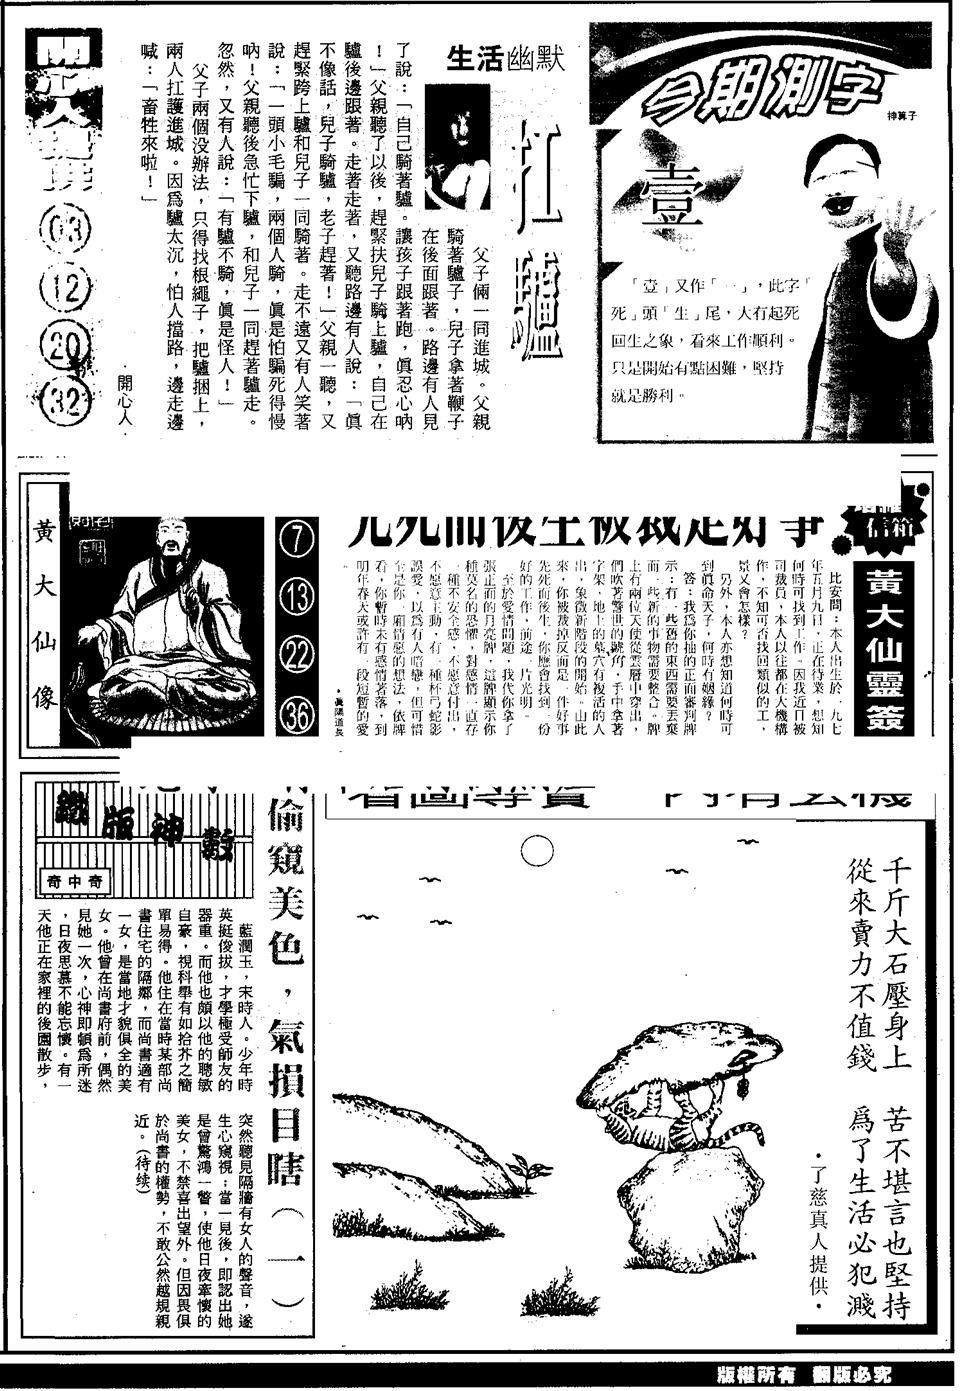 今期測字
神算子
壹
「壹」又作「一」，此字「
死」頭「生」尾，人有起死
回生之象，看來工作順利。
只是開始有點困難，堅持
就是勝利。
生活幽默
扛驢
父子倆一同進城。父親
騎著驢子，兒子拿著鞭子
在後面跟著。路邊有人見
了說：「自己騎著驢。讓孩子跟著跑，真忍心吶
！」父親聽了以後，趕緊扶兒子騎上驢，自己在
驢後邊跟著。走著走著，又聽路邊有人說：「真
不像話，兒子騎驢，老子趕著！」父親一聽，又
趕緊跨上驢和兒子一同騎著。走不遠又有人笑著
說：「一頭小毛騙，兩個人騎，真是怕騙死得慢
吶！父親聽後急忙下驢，和兒子一同趕著驢走。
忽然，又有人說：「有驢不騎，真是怪人！」
父子兩個沒辦法，只得找根繩子，把驢捆上，
兩人扛護進城。因爲驢太沉，怕人擋路，邊走邊
喊：「畜牲來啦！」
·開心人·
03
12
20
32
信箱
黃大仙靈簽
先死而後生被裁是好事
比安問：本人出生於一九七
年五月九日，正在待業，想知
何時可找到工作。因我近日被
司裁員，本人以往都在大機構
作，不知可否找回類似的工，
景又會怎樣？
另外，本人亦想知道何時可
到真命天子，何時有姻緣？
答：我爲你抽的正面審判牌
示：有一些舊的東西需要丟棄
而一些新的事物需要整合。牌
上有兩位天使從雲層中穿出，
們吹著警世的號角，手中拿著
字架，地上的墓穴有複活的人
出，象徵新階段的開始。由此
來，你被裁掉反而是一件好事
先死而後生，你應會找到一份
好的工作，前途一片光明。
至於愛情問題，我代你拿了
張正面的月亮牌，這牌顯示你
種莫名的恐懼，對感情一直存
一種不安全感，不愿意付出，
不愿意主動，有一種杯弓蛇影
誤愛，以爲有人暗戀，但可惜
全是你一廂情愿的想法，依牌
看，你暫時未有感情著落，到
明年春天或許有一段短暫的愛
·真陽道長
7
13
22
36
黃大仙像
看圖尋寶　內有玄機
千斤大石壓身上　苦不堪言也堅持
從來賣力不值錢　爲了生活必犯濺
·了慈真人提供·
鐵版神數
奇中奇
偷窺美色，氣損目瞎（一）
藍潤玉，宋時人。少年時
英挺俊拔，才學極受師友的
器重。而他也頗以他的聰敏
自豪，視科舉有如拾芥之簡
單易得。他住在當時某部尚
書住宅的隔鄰，而尚書適有
一女，是當地才貌俱全的美
女。他曾在尚書府前，偶然
見她一次，心神即頓爲所迷
，日夜思慕不能忘懷。有一
天他正在家裡的後園散步，
突然聽見隔牆有女人的聲音，遂
生心窺視；當一見後，即認出她
是曾驚鴻一瞥，使他日夜牽懷的
美女，不禁喜出望外。但因畏俱
於尚書的權勢，不敢公然越規親
近。（待续）
版權所有　翻版必究